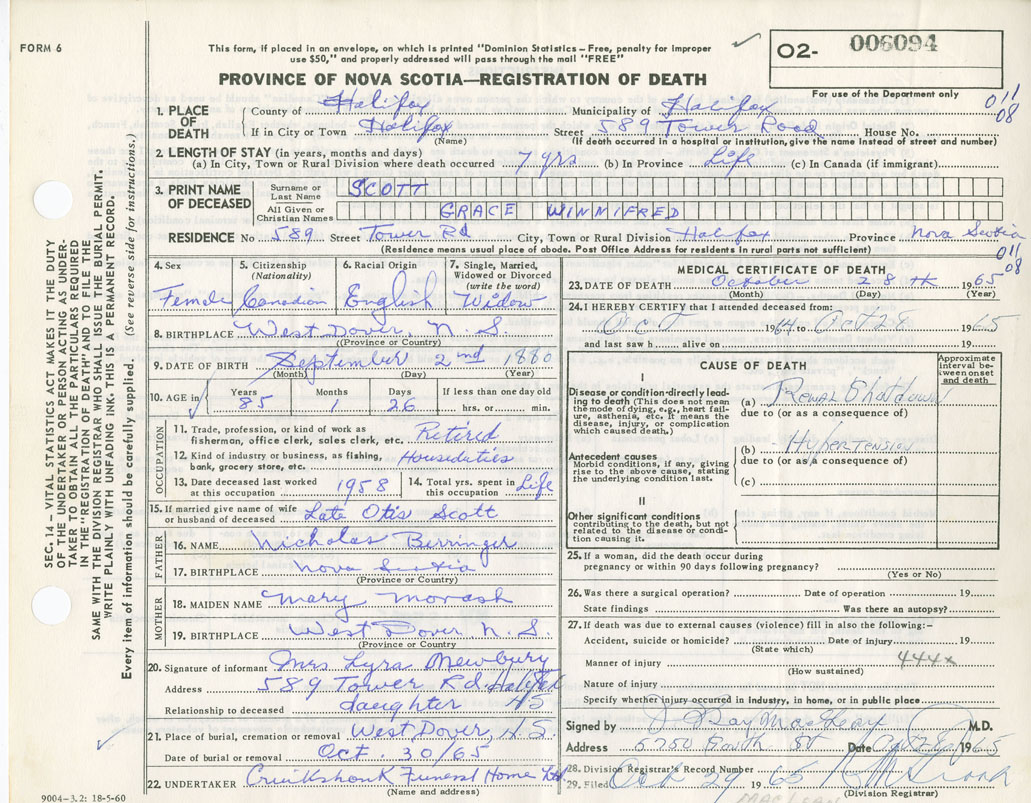 FORM 6
This form, if placed in an envelope, on which is printed "Dominion Statistics – Free, penalty for improper
use $50," and properly addressed will pass through the mail "FREE"
O2- 006094
PROVINCE OF NOVA SCOTIA—REGISTRATION OF DEATH
For use of the Department only
011
08
1. PLACE OF DEATH
County of Halifax Municipality of Halifax
If in City or Town Halifax Street 589 Tower Road House No.
(Name) (If death occurred in a hospital or institution, give the name instead of street and number)
2. LENGTH OF STAY (in years, months and days)
(a) In City, Town or Rural Division where death occurred 7 yrs (b) In Province Life (c) In Canada (if immigrant)
3. PRINT NAME OF DECEASED
Surname or Last Name SCOTT
All Given or Christian Names GRACE WINNIFRED
RESIDENCE No 589 Street Tower Rd City, Town or Rural Division Halifax Province Nova Scotia
(Residence means usual place of abode. Post Office Address for residents in rural parts not sufficient)
011
08
4. Sex Female
5. Citizenship (Nationality) Canadian
6. Racial Origin English
7. Single, Married, Widowed or Divorced (write the word) Widow
8. BIRTHPLACE West Dover, N. S.
(Province or Country)
9. DATE OF BIRTH September 2nd 1880
(Month) (Day) (Year)
10. AGE in Years 85 Months 1 Days 26 If less than one day old hrs. or min.
OCCUPATION
11. Trade, profession, or kind of work as fisherman, office clerk, sales clerk, etc. Retired
12. Kind of industry or business, as fishing, bank, grocery store, etc. Houseduties
13. Date deceased last worked at this occupation 1958
14. Total yrs. spent in this occupation Life
15. If married give name of wife or husband of deceased Late Otis Scott
FATHER
16. NAME Nicholas Berringer
17. BIRTHPLACE Nova Scotia
(Province or Country)
MOTHER
18. MAIDEN NAME Mary Morash
19. BIRTHPLACE West Dover, N. S.
(Province or Country
20. Signature of informant Mrs Lyra Mewbury
Address 589 Tower Rd. Halifax
Relationship to deceased daughter NS
21. Place of burial, cremation or removal West Dover, N.S.
Date of burial or removal Oct. 30/65
22. UNDERTAKER Cruikshank Funeral Home Ltd.
(Name and address)
9004–3.2: 18-5-60
MEDICAL CERTIFICATE OF DEATH
23. DATE OF DEATH October 28th 1965
(Month) (Day) (Year)
24. I HEREBY CERTIFY that I attended deceased from:
Oct 1964 to Oct 28 1965
and last saw h alive on 19
CAUSE OF DEATH
Approximate interval between onset and death
I
Disease or condition directly leading to death (This does not mean the mode of dying, e.g., heart failure, asthenia, etc. It means the disease, injury, or complication which caused death.)
(a) Renal Shutdown
due to (or as a consequence of)
Antecedent causes
Morbid conditions, if any, giving rise to the above cause, stating the underlying condition last.
(b) Hypertension
due to (or as a consequence of)
(c)
II
Other significant conditions
contributing to the death, but not related to the disease or condition causing it.
25. If a woman, did the death occur during pregnancy or within 90 days following pregnancy?
(Yes or No)
26. Was there a surgical operation? Date of operation 19
State findings Was there an autopsy?
27. If death was due to external causes (violence) fill in also the following:–
Accident, suicide or homicide? Date of injury 19
(State which)
Manner of injury 444x
(How sustained)
Nature of injury
Specify whether injury occurred in industry, in home, or in public place
Signed by J Ray MacLeay M.D.
Address 5750 South St Date Oct 28 1965
28. Division Registrar's Record Number
29. Filed Oct 29 1965
(Division Registrar)
MACLEAN
SEC. 14 – VITAL STATISTICS ACT MAKES IT THE DUTY
OF THE UNDERTAKER OR PERSON ACTING AS UNDER-
TAKER TO OBTAIN ALL THE PARTICULARS REQUIRED
IN THE "REGISTRATION OF DEATH" AND TO FILE THE
SAME WITH THE DIVISION REGISTRAR WHO SHALL ISSUE THE BURIAL PERMIT.
WRITE PLAINLY WITH UNFADING INK. THIS IS A PERMANENT RECORD.
Every item of information should be carefully supplied. (See reverse side for instructions.)